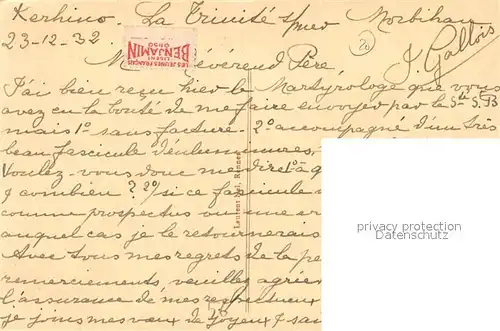 Kerhino. La Trinité s/mer Morbihan
23-12-32
LES JEUNES FRANÇAIS
LISENT
BENJAMIN
0f50
20
J. Gallois
Mon Révérend Père
J'ai bien reçu hier le Martyrologe que vous
avez eu la bonté de me faire envoyer par la Sté S.
mais 1° sans facture - 2° accompagné d'un très
beau fascicule d'enluminures,
Voulez-vous donc me dire 1° à q
& combien ? 2°/ si ce fascicule
comme prospectus ou
auquel cas je le retournerais
Avec tous mes regrets de la pe
remerciements, veuillez agrée
l'assurance de mes respectueux
je joins mes vœux de joyeux & sai
Laurent Nel, Rennes
privacy protection
Datenschutz